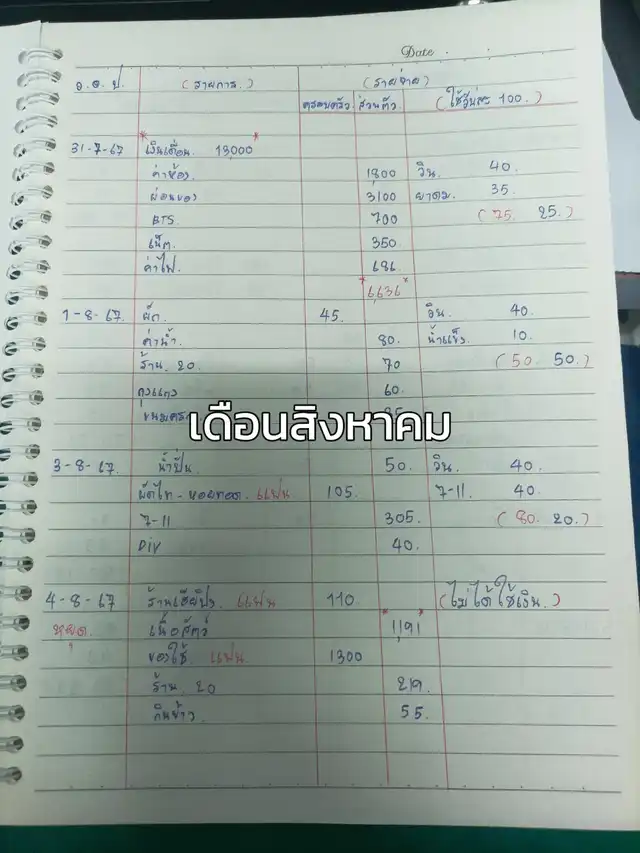 Date
ว.ด.ป. (รายการ.) (รายจ่าย)
ครอบครัว ส่วนตัว (ใช้วันละ 100.)
31-7-67 เงินเดือน. 13,000
ค่าห้อง 1,800 วิน. 40.
ผ่อนของ 3,100 ยาดม. 35.
BTS. 700 (75. 25.)
เน็ต. 350.
ค่าไฟ. 686.
6,636
1-8-67. ผัก. 45. วิน. 40.
ค่าน้ำ. 80. น้ำแข็ง. 10.
ร้าน. 20. 70 (50. 50.)
ถุงแดง 60.
เดือนสิงหาคม
3-8-67. น้ำปั่น. 50. วิน. 40.
ผัดไท - หอยทอด. แฟน 105. 7-11. 40.
7-11 305. (80. 20.)
DIY 40.
4-8-67 แฟน 110. (ไม่ได้ใช้เงิน.)
หยุด. เนื้อสัตว์ 1,191
ของใช้. แฟน 1300
ร้าน. 20 219.
กินข้าว. 55.